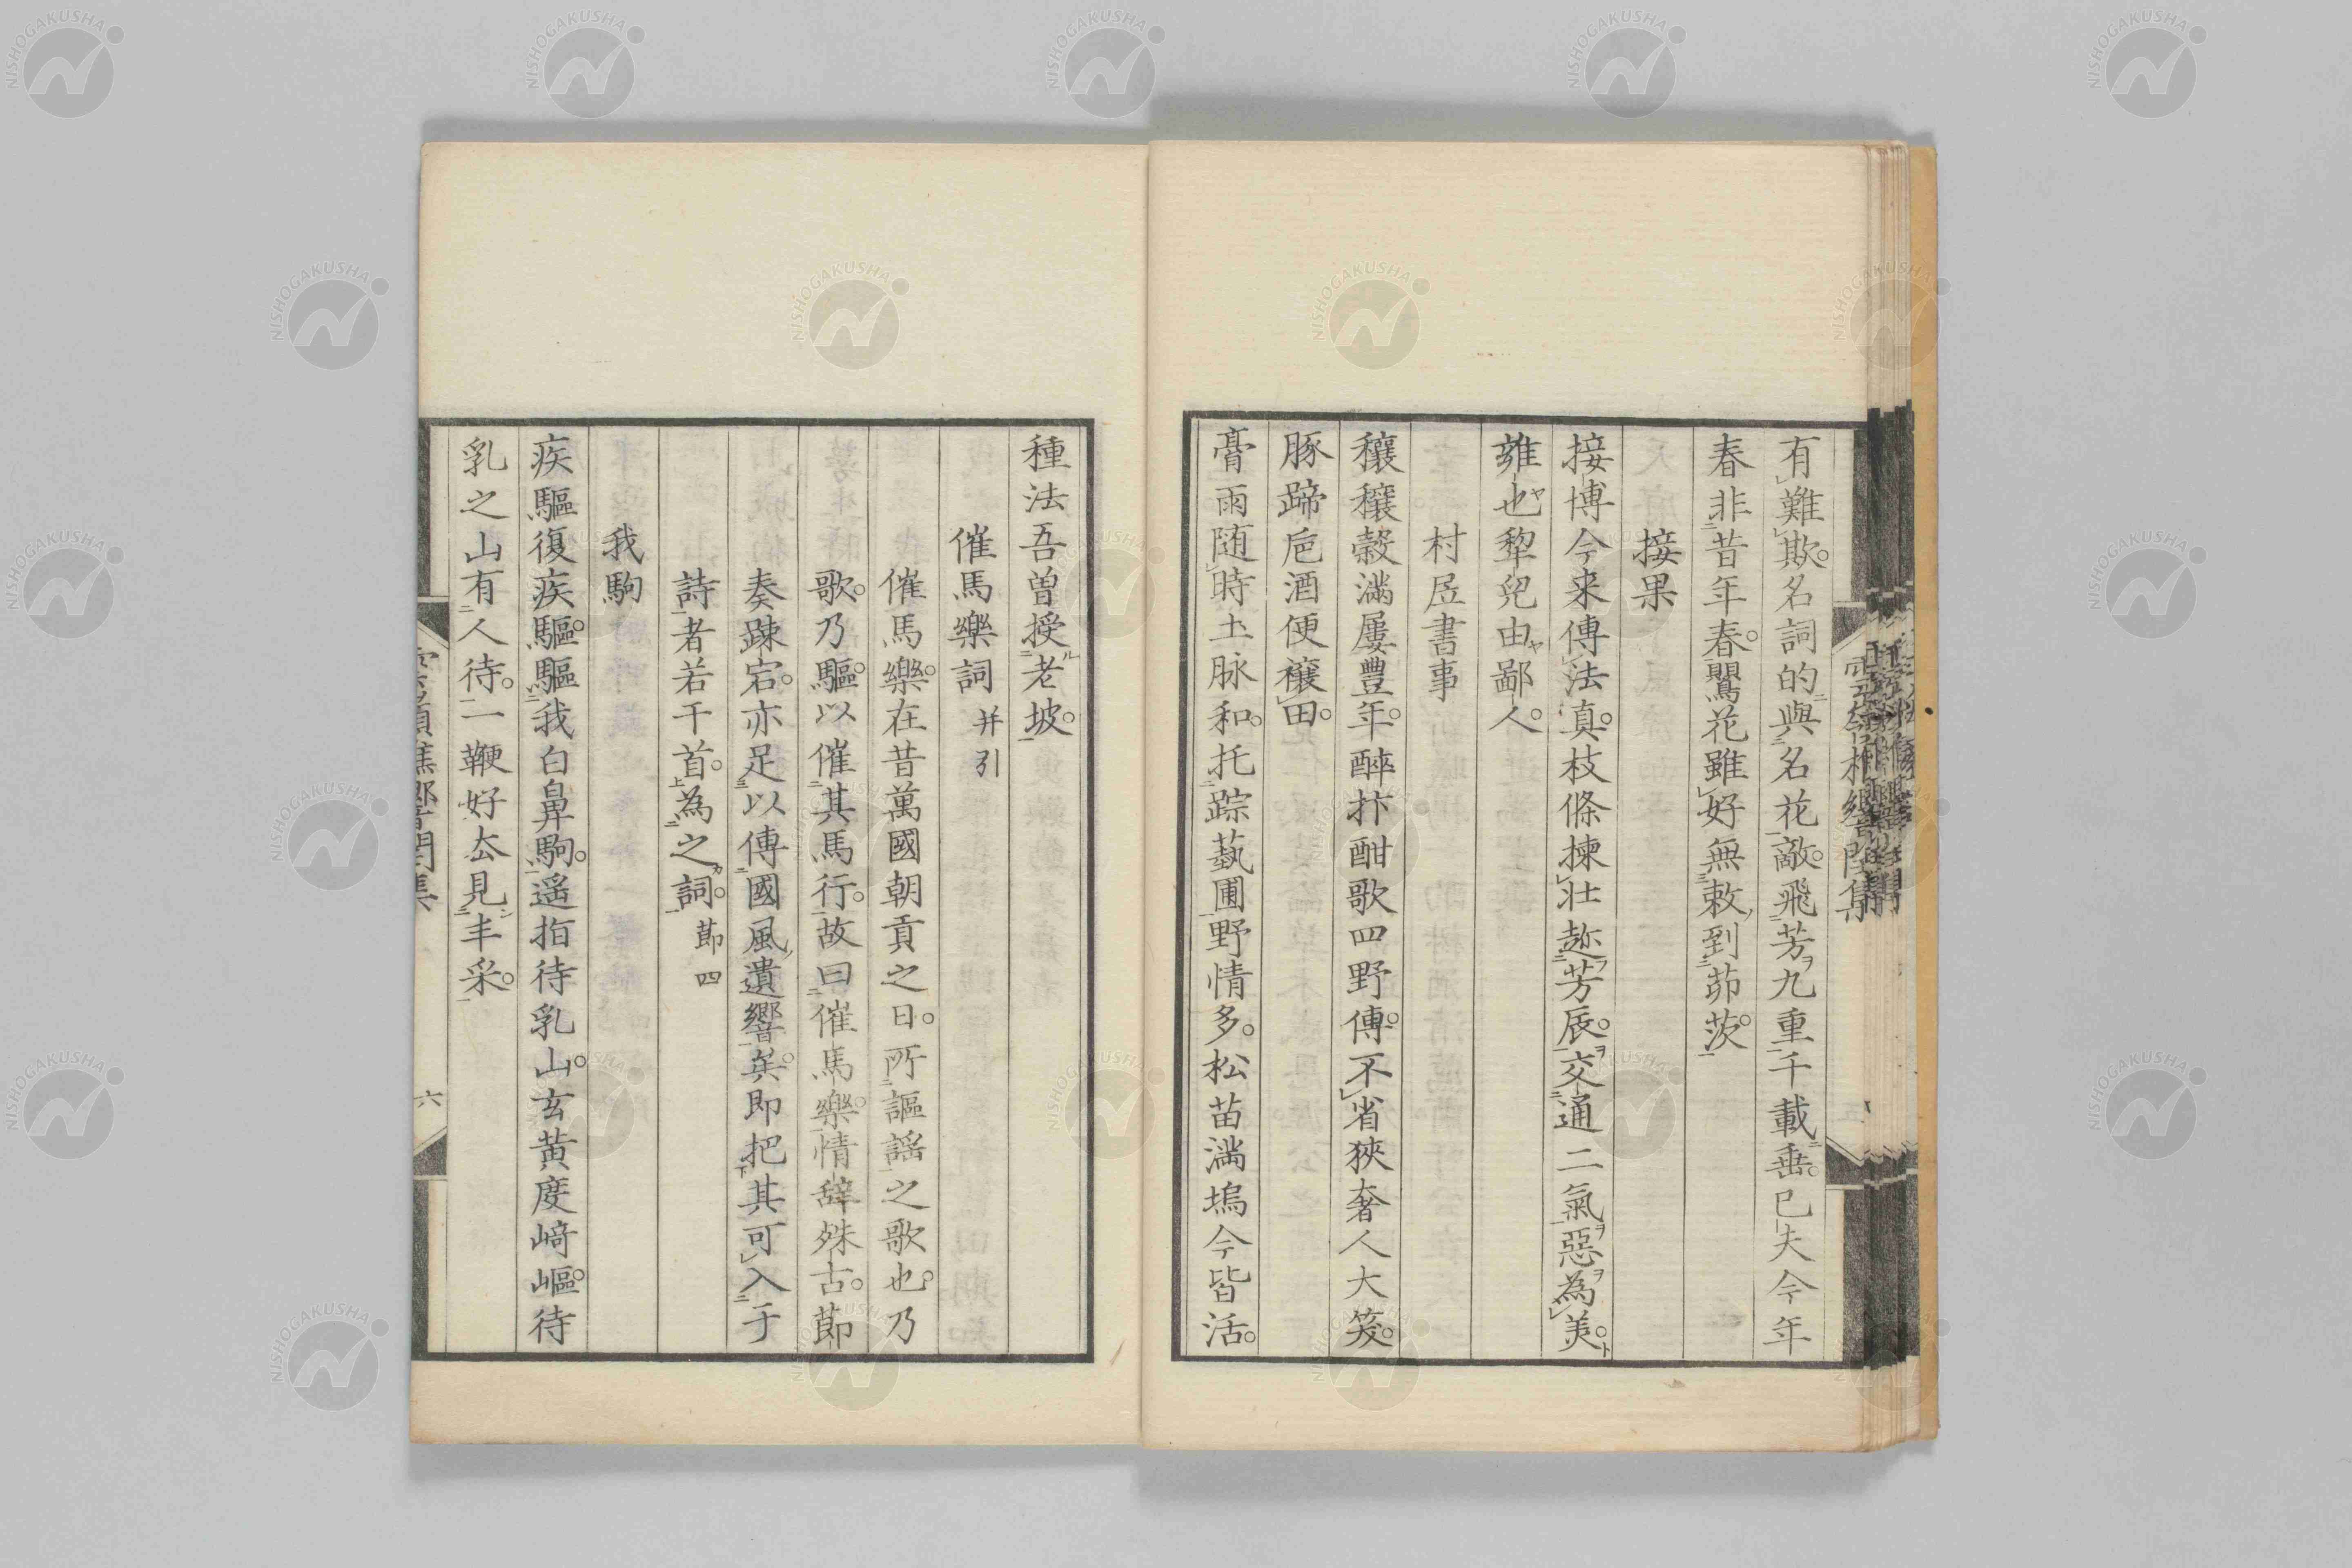 有難欺。名詞的與名花敵。飛芳九重千載垂。已夫今年
春非昔年春。鸎花雖好無敕到茆茨。
接果
接博今来傳法真。枝條揀壮趂芳辰。交通二氣惡為美。
雖也犂兒由鄙人。
村居書事
穰穰穀滿屢豐年。醉抃酣歌四野傳。不省狹奢人大笑。
豚蹄卮酒便禳田。
膏雨随時土脉和。托踪蓺圃野情多。松苗滿塢今皆活。
種法吾曽授老坡。
催馬樂詞 并引
催馬樂。在昔萬國朝貢之日。所謳謠之歌也。乃
歌。乃驅。以催其馬行。故曰催馬樂。情辞殊古。節
奏踈宕。亦足以傳國風遺響矣。即把其可入于
詩者若干首。為之詞。節四
我駒
疾驅復疾驅。驅我白鼻駒。遥指待乳山。玄黄度﨑嶇。待
乳之山有人待。一鞭好去見丰采。
六
NISHOGAKUSHA